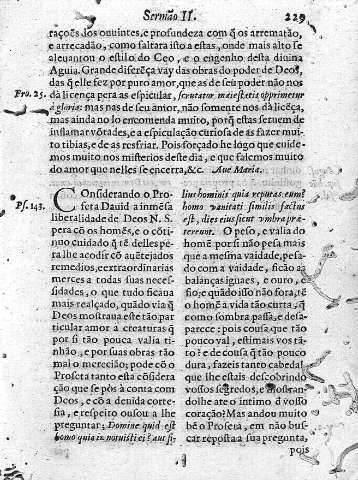 Sermão II.
229
rações dos ouuintes, e profundeza com q̃ os arrematão,
e arrecadão, como saltara isto a estas, onde mais alto se
aleuantou o estilo do Ceo, e o engenho desta diuina
Aguia. Grande diferẽça vay das obras do poder de Deos,
das q̃ elle fez por puro amor, que as de seu poder não nos
Pro. 25.
dá licença pera as especular, scrutator maiestatis opprimetur
à gloria: mas nas de seu amor, não somente nos dá licẽça,
mas ainda no lo encomenda muito, porq̃ estas seruem de
inflamar võtades, e a especulação curiosa de as fazer mui
to tibias, e de as resfriar. Pois forçado he logo que cuide-
mos muito nos misterios deste dia, e que falemos muito
do amor que nelles se encerra, &c. Aue Maria.
Ps. 143.
COnsiderando o Pro-
feta Dauid a inmẽsa
liberalidade de Deos N. S.
pera cõ os homẽs, e o cõti-
nuo cuidado q̃ tẽ delles pe-
ra lhe acodir cõ auẽtejados
remedios, e extraordinarias
merces a todas suas neces-
sidades, o que tudo ficaua
mais realçado, quãdo via q̃
Deos mostraua este tão par
ticular amor a creaturas q̃
por si tão pouca valia ti-
nhão, e por suas obras tão
mal o merecião; pode cõ o
Profeta tanto esta cõsidera
ção que se pòs à conta com
Deos, e cõ a deuida corte-
sia, e respeito ousou a lhe
preguntar; Domine quid est
homo quia innotuisti ei? aut fi-
lius hominis quia reputas eum?
homo vanitati similis factus
est, dies eius sicut vmbra præ-
tereunt. O peso, e valia do
homẽ por si não pesa mais
que a mesma vaidade, pesa-
do com a vaidade, ficão as
balanças iguaes, e ouro, e
fio; e quãdo isso não fora, tẽ
o homẽ a vida tão curta, q̃
como sombra passa, e desa-
parece: pois cousa que tão
pouco val, estimais vos tã-
to? e de cousa q̃ tão pouco
dura, fazeis tanto cabedal
que lhe estais descobrindo
vossos segredos, e mostran-
dolhe ate o intimo d̃ vosso
coração? Mas andou muito
bẽ o Profeta, em não bus-
car reposta a sua pregunta,
pois